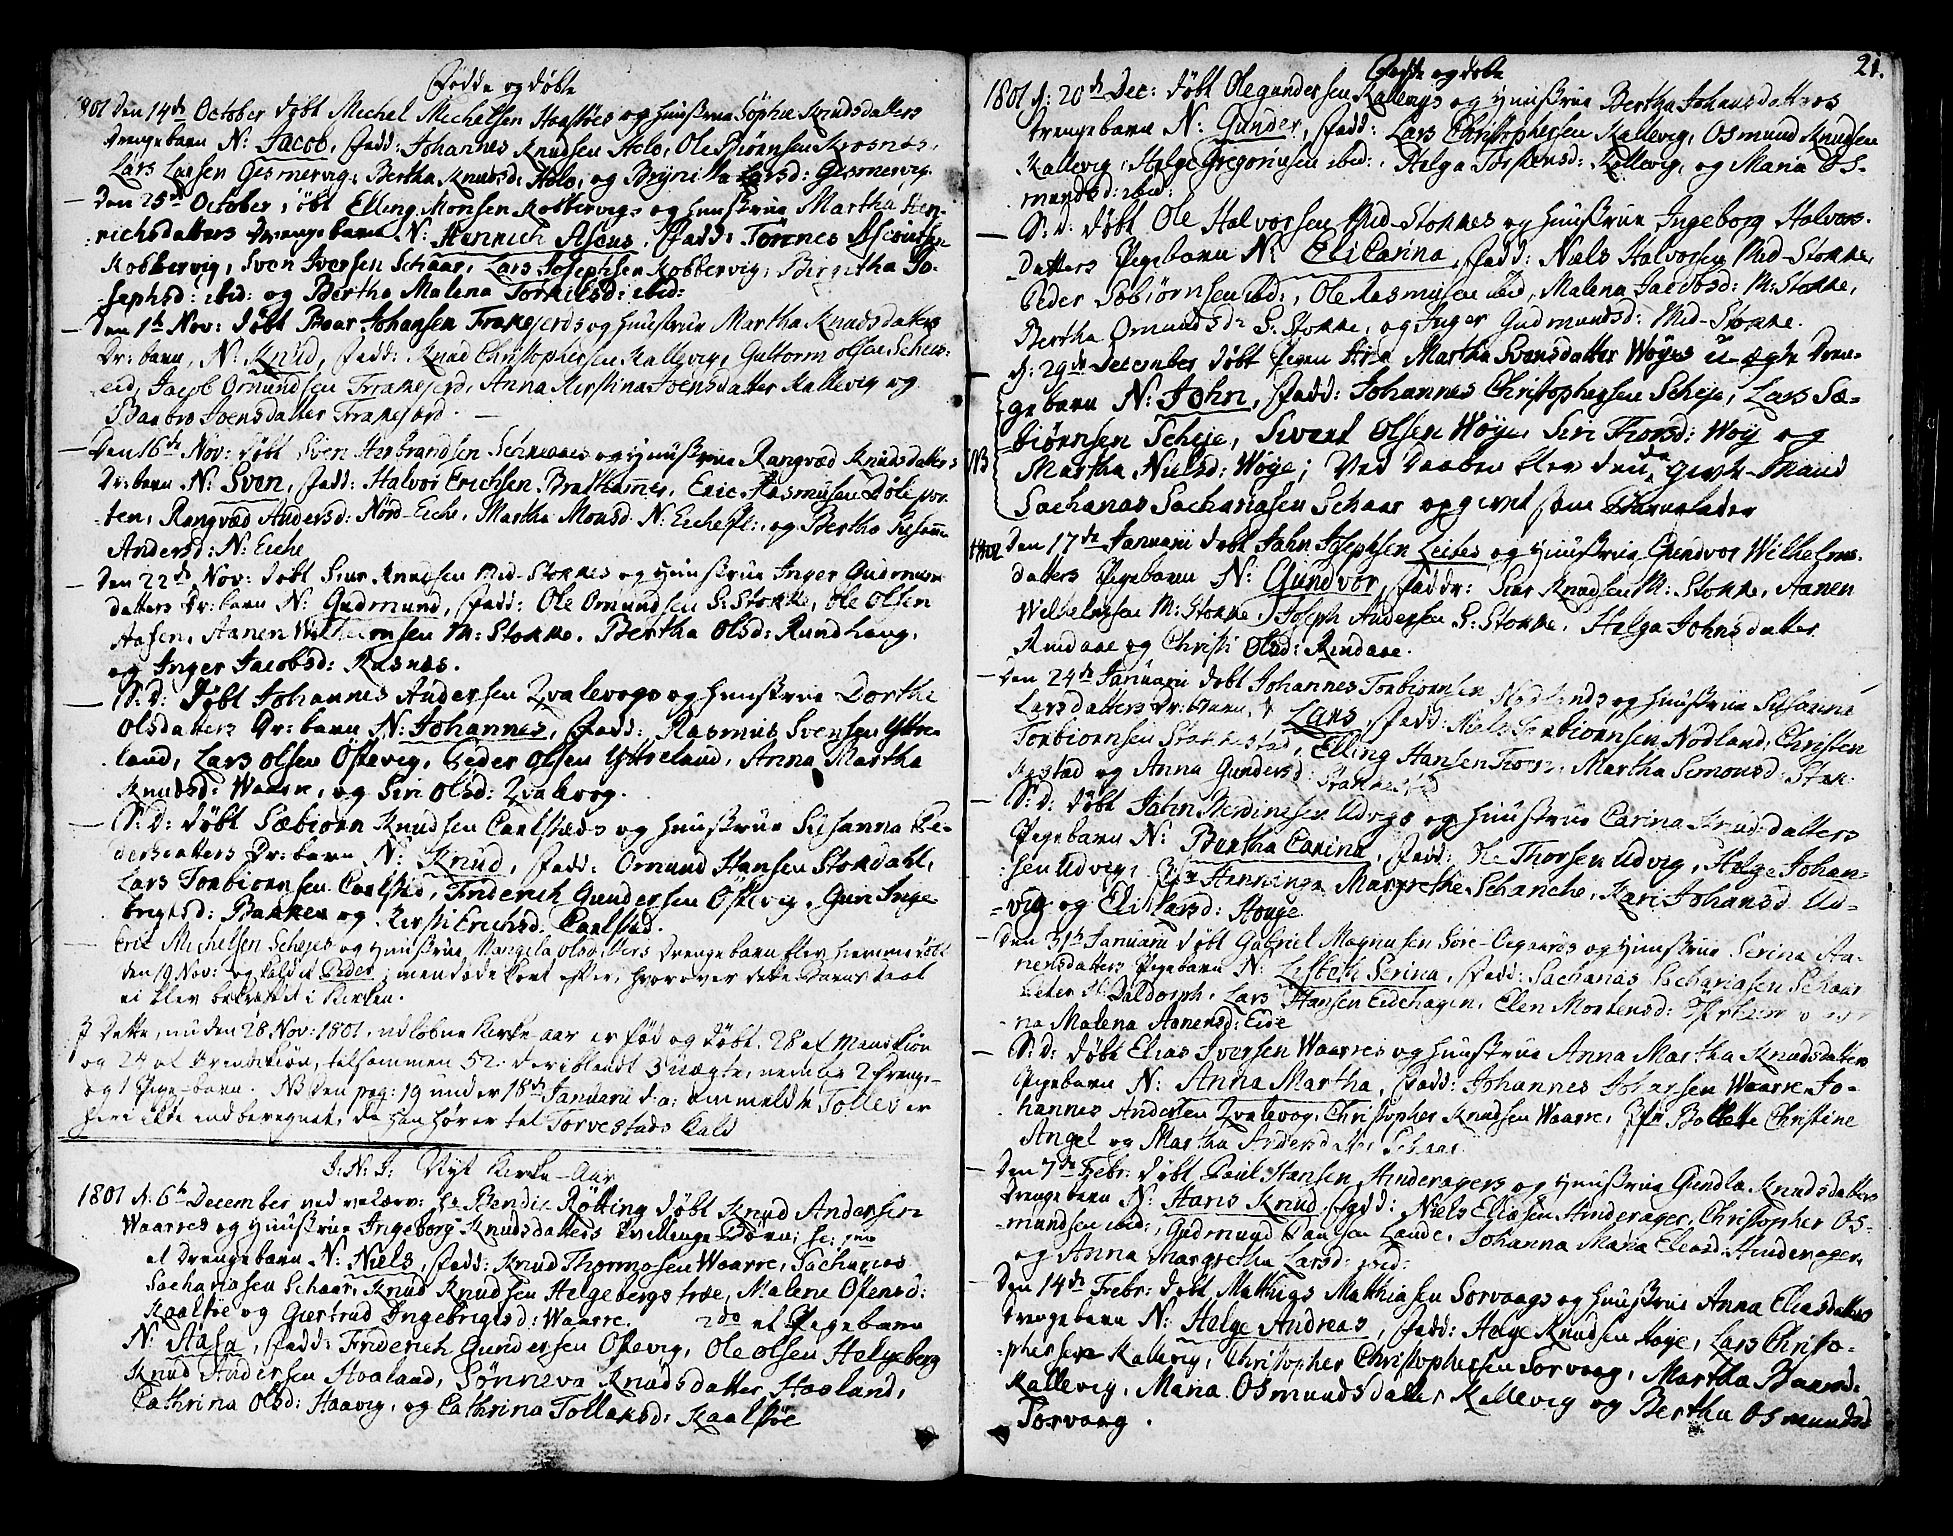 Födde og døbte
1801 Den 14de October døbt Michel Michelsen og Hustrue Sophie Knudsdatters
Drengebarn N: Jacob, fadd: Johannes Knudsen Holo, Ole Biørnsen Krosnæs,
Lars Larsen Gesmervig, Bertha Knudsd: Holo, og Brynilla Larsd: Gesmervig
— Den 25de October, døbt Elling Monsen Kobbervigs og Hustrue Martha Hen-
richsdatters Drengebarn N: Henrich Asens, fadd: Tonnes
Kobbervig, Sven Iversen Schaar, Lars Josephsen Kobbervig, Birgitha Jo-
sephsd: ibid: og Bertha Malena Torkilsd: ibid:
— Den 1te Nov: døbt Baar Johansen Frakefjords og Hustrue Martha Knudsdatters
Dr: barn, N: Knud, fadd: Knud Christophersen Kallevig, Guttorm Olsen Sches-
eid, Jacob Omundsen Frakefjord, Anna Kirstina Joensdatter Kallevig og
Barbro Joensdatter Frakefjord. —
— Den 16de Nov: døbt Sven Herbrandsen og Hustrue Rangvæd Knudsdatters
Dr: barn N: Sven, fadd: Halvor Erichsen Bratthammer, Eric Rasmusen Døle por-
ten, Rangvæd Andersd: Nord-Eiche, Martha Monsd: N: Eiche, og Bertha
Andersd: N: Eiche
— Den 22de Nov: døbt Siur Knudsen Mid-Stokkes og Hustrue Inger Gudmun-
datters Dr: barn N: Gudmund, fadd: Ole Omundsen S: Stokke, Ole Olsen
Aasen, Aanen Wilhelmsen M: Stokke, Bertha Olsd: Rundhaug,
og Inger Jacobsd: Rasnes.
— S: D: Døbt Johannes Andersen Qvalevogs og Hustrue Dorthe
Olsdatters Dr: barn N: Johannes, fadd: Rasmus Svensen Yttre-
land, Lars Olsen Østevig, Peder Olsen Yttreland, Anna Martha
Knudsd: Waarre, og Siri Olsd: Qvalevog.
— S: D: døbt Sæbiørn Knudsen Carlstads og Hustrue Susanna Pe-
dersdatters Dr: barn N: Knud, fadd: Omund Hansen Stokdahl,
Lars Torbiørnsen Carlstad, Friderich Gundersen Østevig, Guri Inge-
brigtsd: Bakken og Kirsti Erichsd: Carlstad.
— Eric Michelsen Schejes og Hustrue Mangela Olsdatters Drengebarn blev hiemmedøbt
den 19 Nov: og kaldet Peder; men døde kort efter, hvorover dette Barns Daab
ei blev bekræftet i Kirken.
I Dette, nu den 28 Nov: 1801, udløbne Kirke-aar er fød og døbt 28 af Mankiøn
og 24 af Qvindekiøn, tilsammen 52. deriblandt 3 uægte, nemlig 2 drenge-
og 1 Pige-barn. NB den pag: 19 under 18de Januarii d: a: anmeldte Tolles er
her ikke indberegnet, da han hører til Torvestads Kald
I. N. J. Nyt Kirke-Aar
1801 d. 6te December, ved velærv: Hr Bendix Røtting døbt Knud Andersen
Waarres og Hustrue Ingeborg Knudsdatters Tvillinge Børn;
et Drengebarn N: Niels, fadd: Knud Thormosen Waarre, Sacharias
Sachariasen Schaar, Knud Knudsen Helgebergstræe, Malene Østensd:
Kaalstøe og Giertrud Ingebrigtsd: Waarre. 2do et Pigebarn
N: Aasa, fadd: Friderich Gundersen Østevig, Ole Olsen Helgeberg
Knud Andersen Haaland, Sønneva Knudsdatter Haaland,
Cathrina Olsd: Haavig, og Cathrina Tollaksd: Kaalstøe
21.
Fødde og døbte
1801 d: 20de Dec: døbt Ole Gundersen Kallevigs og Hustrue Bertha Johansdatters
Drengebarn N: Gunder, fadd: Lars Christophersen Kallevig, Osmund Knudsen
Kallevig, Helge Gregoriusen ibid:, Helga Torstensd: Kallevig, og Maria Os-
mundsd: ibid:
— S: D: døbt Ole Halvorsen Mid-Stokkes og Hustrue Ingeborg Halvors-
datters Pigebarn N: Eli Carina, fadd: Niels Halvorsen Mid-Stokke,
Peder Sæbiørnsen ibid:, Ole Rasmusen ibid, Malena Jacobsd: M: Stokke,
Bertha Omundsd: S: Stokke, og Inger Gudmundsd: Mid-Stokke.
— d: 29de December døbt Pigen Siri Martha Svensdatter Wøyes u-ægte Dren-
gebarn N: John, fadd: Johannes Christophersen Scheje, Lars Sæ-
biørnsen Scheje, Sivert Olsen Wøye, Siri Thorsd: Woy og
NB Martha Nielsd: Wøye; Ved Daaben blev den givte Mand
Sacharias Sachariasen Schaar opgivet som Barnefader
1802 Den 17de Januarii døbt Jahn Josephsen Leites og Hustrue Gundvor Wilhelms-
datters Pigebarn N: Gundvor, faddr: Siur Knudsen M: Stokke, Aanen
Wilhelmsen M: Stokke, Joseph Andersen S: Stokke, Helga Johnsdatter
Rindaae og Christi Olsd: Rindaae.
— Den 24de Januarii døbt Johannes Torbiørnsen Nodlands og Hustrue Susanne
Larsdatters Dr: barn, N: Lars, fadd: Niels Torbiørnsen Nodland, Christen
Torbiørnsen Stokkestad, Elling Hansen, Martha Simonsd: Stok-
kestad og Anna Gundersd: Stokkestad
— S: D: døbt Jahn Udvigs og Hustrue Carina Knudsdatters
Pigebarn N: Bertha Carina, fadd: Ole Thorsen Udvig, Helge Johan-
sen Udvig, Henninga Margrethe Schanche, Kari Johansd: Ud-
vig og Eli Larsd: Houge
— Den 31te Januarii døbt Gabriel Magnusen og Hustrue Serina Aa-
nensdatters Pigebarn N: Lisbeth Serina, fadd: Sacharias Sachariasen Schaar
Peter Waldorph, Lars Hansen Eidehagen, Elen Mortensd:
na Malena Aanensd: Eide
— S: D: døbt Elias Iversen Waarres og Hustrue Anna Martha Knudsdatters
Pigebarn N: Anna Martha, fadd: Johannes Johansen Waarre Jo-
hannes Andersen Qvalevog, Christopher Knudsen Waarre, Bollette Christine
Angel og Martha Andersdatter Schaar.
— Den 7de Febr: døbt Paul Hansen Hinderagers og Hustrue Gundla Knudsdatters
Drengebarn N: Hans Knud, fadd: Niels Eliasen Hinderager, Christopher Os-
mundsen ibid:, Gudmund Paulsen Lande, Johanna Maria Eliasd: Hinderager,
og Anna Margretha Larsd: ibid:
— Den 14de Febr: døbt Mathias Mathiasen Sorvaags og Hustrue Anna Eliasdatters
Drengebarn N: Helge Andreas, fadd: Helge Knudsen Hoje, Lars Christo-
phersen Kallevig, Christopher Christophersen Sorvaag, Martha Baarsd:
Kallevig, Maria Osmundsdatter Kallevig og Bertha Osmundsd
Sorvaag.